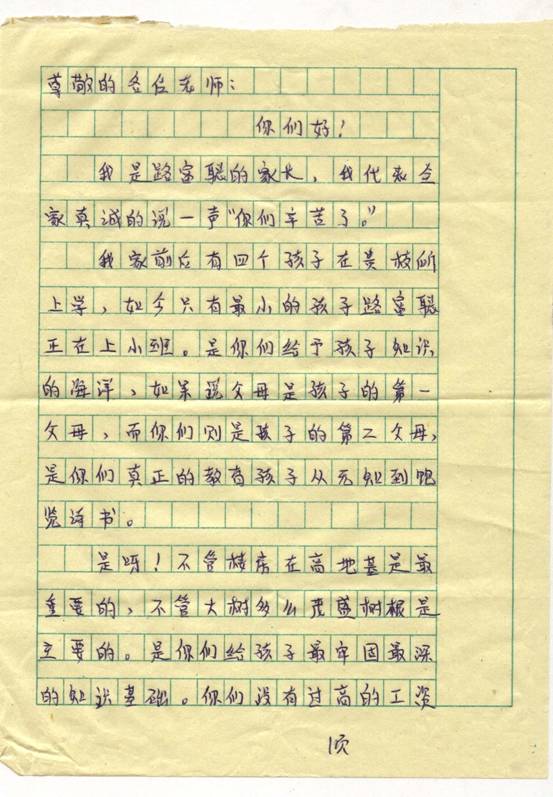 尊敬的各位老师:
你们好!
我是路富聪的家长,我代表全
家真诚的说一声“你们辛苦了。”
我家前后有四个孩子在贵校所
上学,如今只有最小的孩子路富聪
正在上小班。是你们给予孩子知识
的海洋,如果说父母是孩子的第一
父母,而你们则是孩子的第二父母,
是你们真正的教育孩子从无知到饱
览诗书。
是呀!不管楼房在高地基是最
重要的,不管大树多么茂盛树根是
主要的。是你们给孩子最牢固最深
的知识基础。你们没有过高的工资
1页